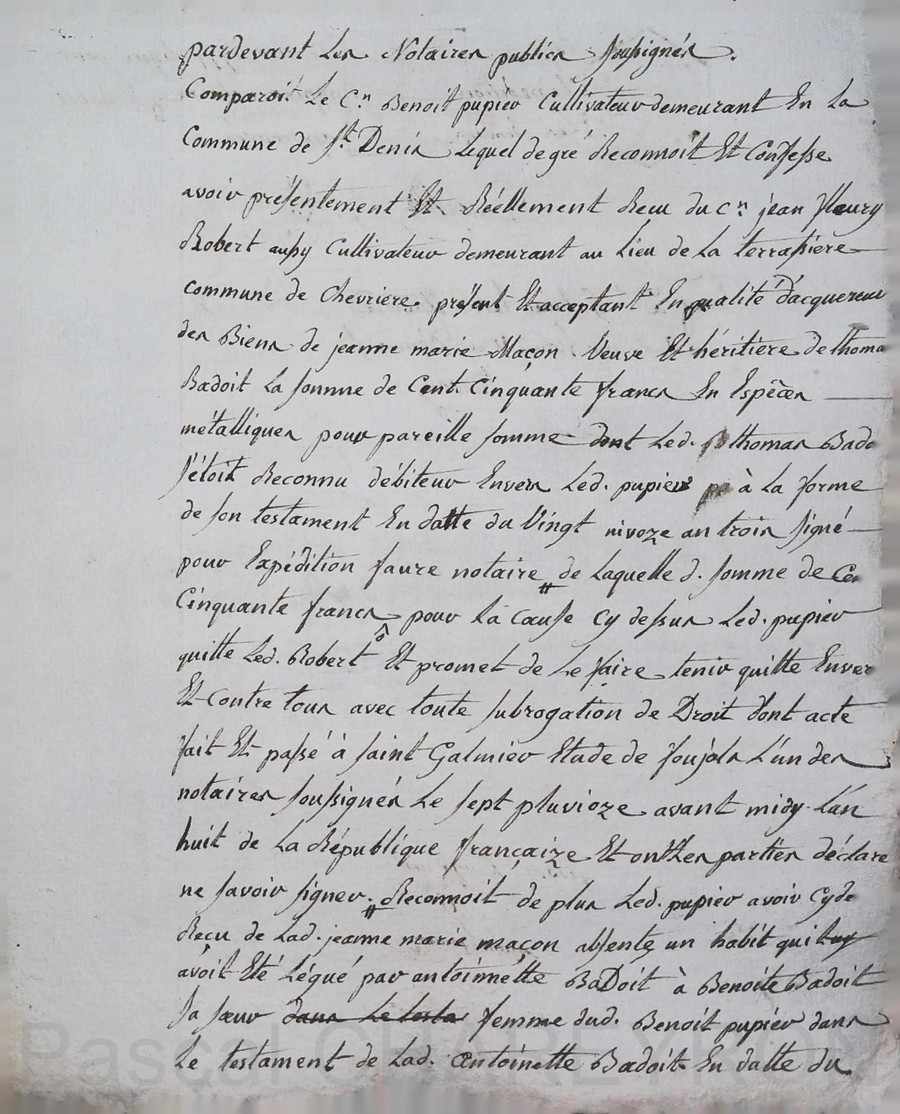 pardevant Les Notaires publics soussignés .
Comparoit Le C.n Benoit pupier Cultivateur demeurant En La
Commune de St. Denis Lequel de gré Reconnoit Et Confesse
avoir présentement Et Réellement Recu du c.n jean fleury
Robert aussy Cultivateur demeurant au Lieu de La terrassiere
commune de Chevriere présent Et acceptant En qualité d'acquereur
des Biens de jeanne marie Maçon Veuve Et héritiere de thoma
Badoit La somme de Cent Cinquante francs En Espèces
métalliques pour pareille somme dont Led. thomas Bado
s'étoit Reconnu débiteur Envers Led. pupier à La forme
de son testament En datte du Vingt nivoze an trois signé
pour Expédition faure notaire de Laquelle d. somme de Ce
Cinquante francs pour la Cause Cy dessus Led. pupier
quitte Led. Robert Et promet de Le faire tenir quitte Enver
Et Contre tous avec toute subrogation de Droit dont acte
fait Et passé à saint Galmier Etude de foujols L'un des
notaires soussignés Le sept pluvioze avant midy L'an
huit de La République françaize Et ont Les parties déclare
ne savoir signer. Reconnoit de plus Led. pupier avoir Cy de
Reçu de Lad. jeanne marie maçon absente un habit qui luy
avoit Eté Légué par antoinette BaDoit à Benoite Badoit
sa sœur dans Le testa femme dud. Benoit pupier dans
Le testament de Lad. antoinette Badoit En datte du